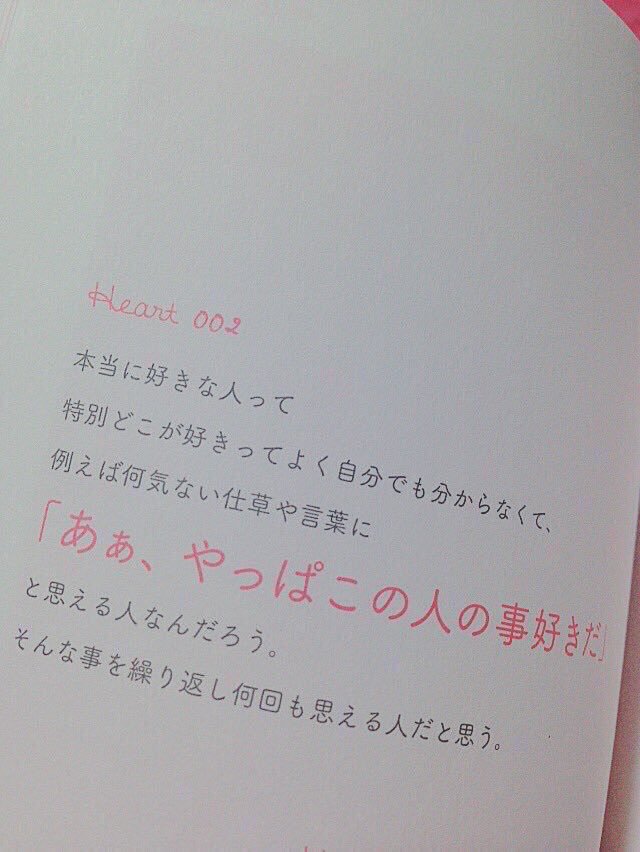 Heart 002
本当に好きな人って
特別どこが好きってよく自分でも分からなくて、
例えば何気ない仕草や言葉に
「あぁ、やっぱこの人の事好きだ」
と思える人なんだろう。
そんな事を繰り返し何回も思える人だと思う。